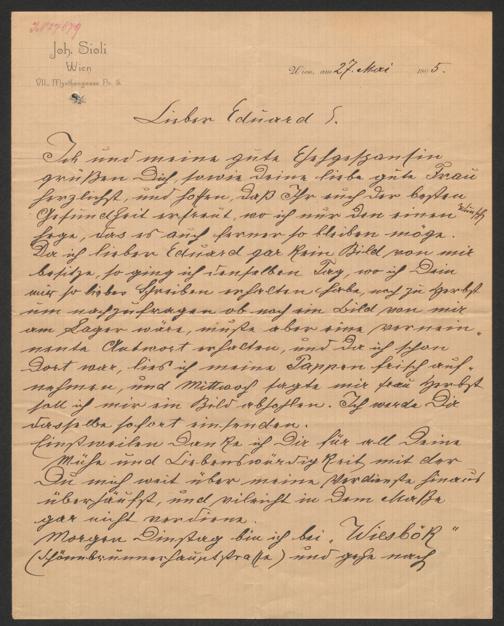 Joh. Sioli
Wien
VII., Myrthengasse Nr. 5.
Wien, am 27. Mai 1905.
Lieber Eduard S.
Ich und meine gute Ehegespansin
grüßen Dich, sowie Deine liebe gute Frau
herzlichst, und hoffen, daß Ihr euch der besten
Gesundheit erfreut, wo ich nur den einen Wunsch
hege, das es auch ferner so bleiben möge.
Da ich lieber Eduard gar kein Bild von mir
besitze, so ging ich denselben Tag, wo ich Dein
mir so liebes Schreiben erhalten habe, noch zu Herbst
um nachzufragen ob noch ein Bild von mir
am Lager wäre, mußte aber eine vernein-
nente Antwort erhalten, und da ich schon
Dort war, lies ich meine Tappen frisch auf-
nehmen, und Mittwoch sagte mir Frau Herbst
soll ich mir ein Bild abholen. Ich werde Dir
dasselbe sofort einsenden.
Einstweilen Danke ich Dir für all Deine
Mühe und Liebenswürdigkeit mit der
Du mich weit über meine Verdienste hinaus
überhäufst, und vileicht in dem Maße
gar nicht verdiene.
Morgen Dinstag bin ich bei „Wiesbök"
(Schönnbrunnerhauptstraße) und gehe nach